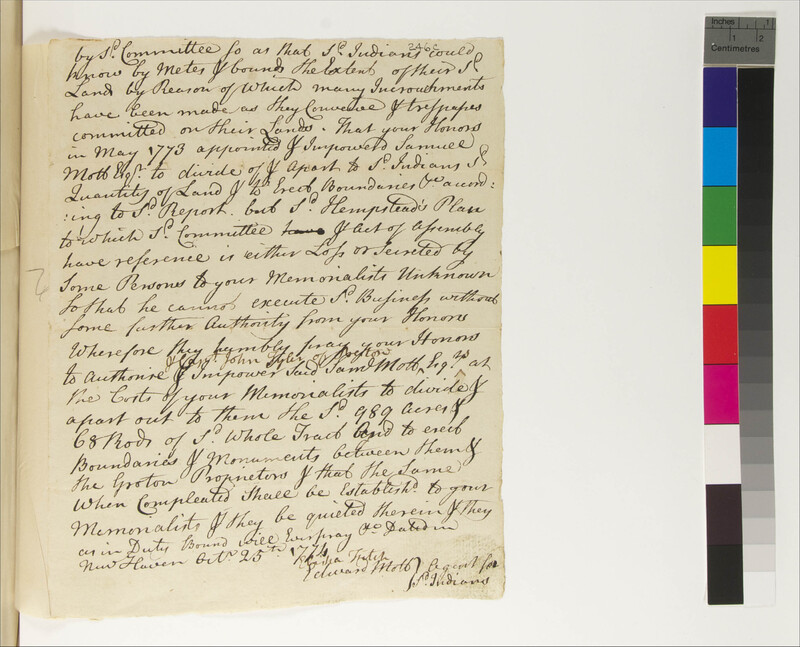 246c
by Sd. Committee so as that Sd. Indians could
know by Metes & bounds the Extent of their Sd.
Land by Reason of Which many Incroachments
have been made as they Conceive & tresspases
committed on their Lands. That your Honors
in May 1773 appointed & Impowerd Samuel
Mott Esqr. to divide of & Apart to Sd. Indians Sd.
Quantity of Land & to Erect Boundaries &c accord:
:ing to Sd. Report. but Sd. Hempstead's Plan
to Which Sd. Committee & Act of Assembly
have reference is either Loss or Secreted by
some Persons to your Memorialists Unknown
so that he cannot execute Sd. Business without
some further Authority from your Honors
Wherefore they humbly pray your Honors
& Capt. John Tyler of Preston
to Authorise & Impower Said Saml. Mott Esqrs. at
the Costs of your Memorialists to divide &
apart out to them the Sd. 989 Acres &
68 Rods of Sd. Whole Tract And to erect
Boundaries & Monuments between them &
the Groton Proprietors & that the Same
When Compleated Shall be Establishd. to your
Memorialists & they be quieted therein & they
as in Duty Bound will Ever pray &c Dated in
New Haven Octr. 25th 1774
Elisha Fitch
Edward Mott } Agent for
Sd. Indians
Inches 1
Centimetres 1 2